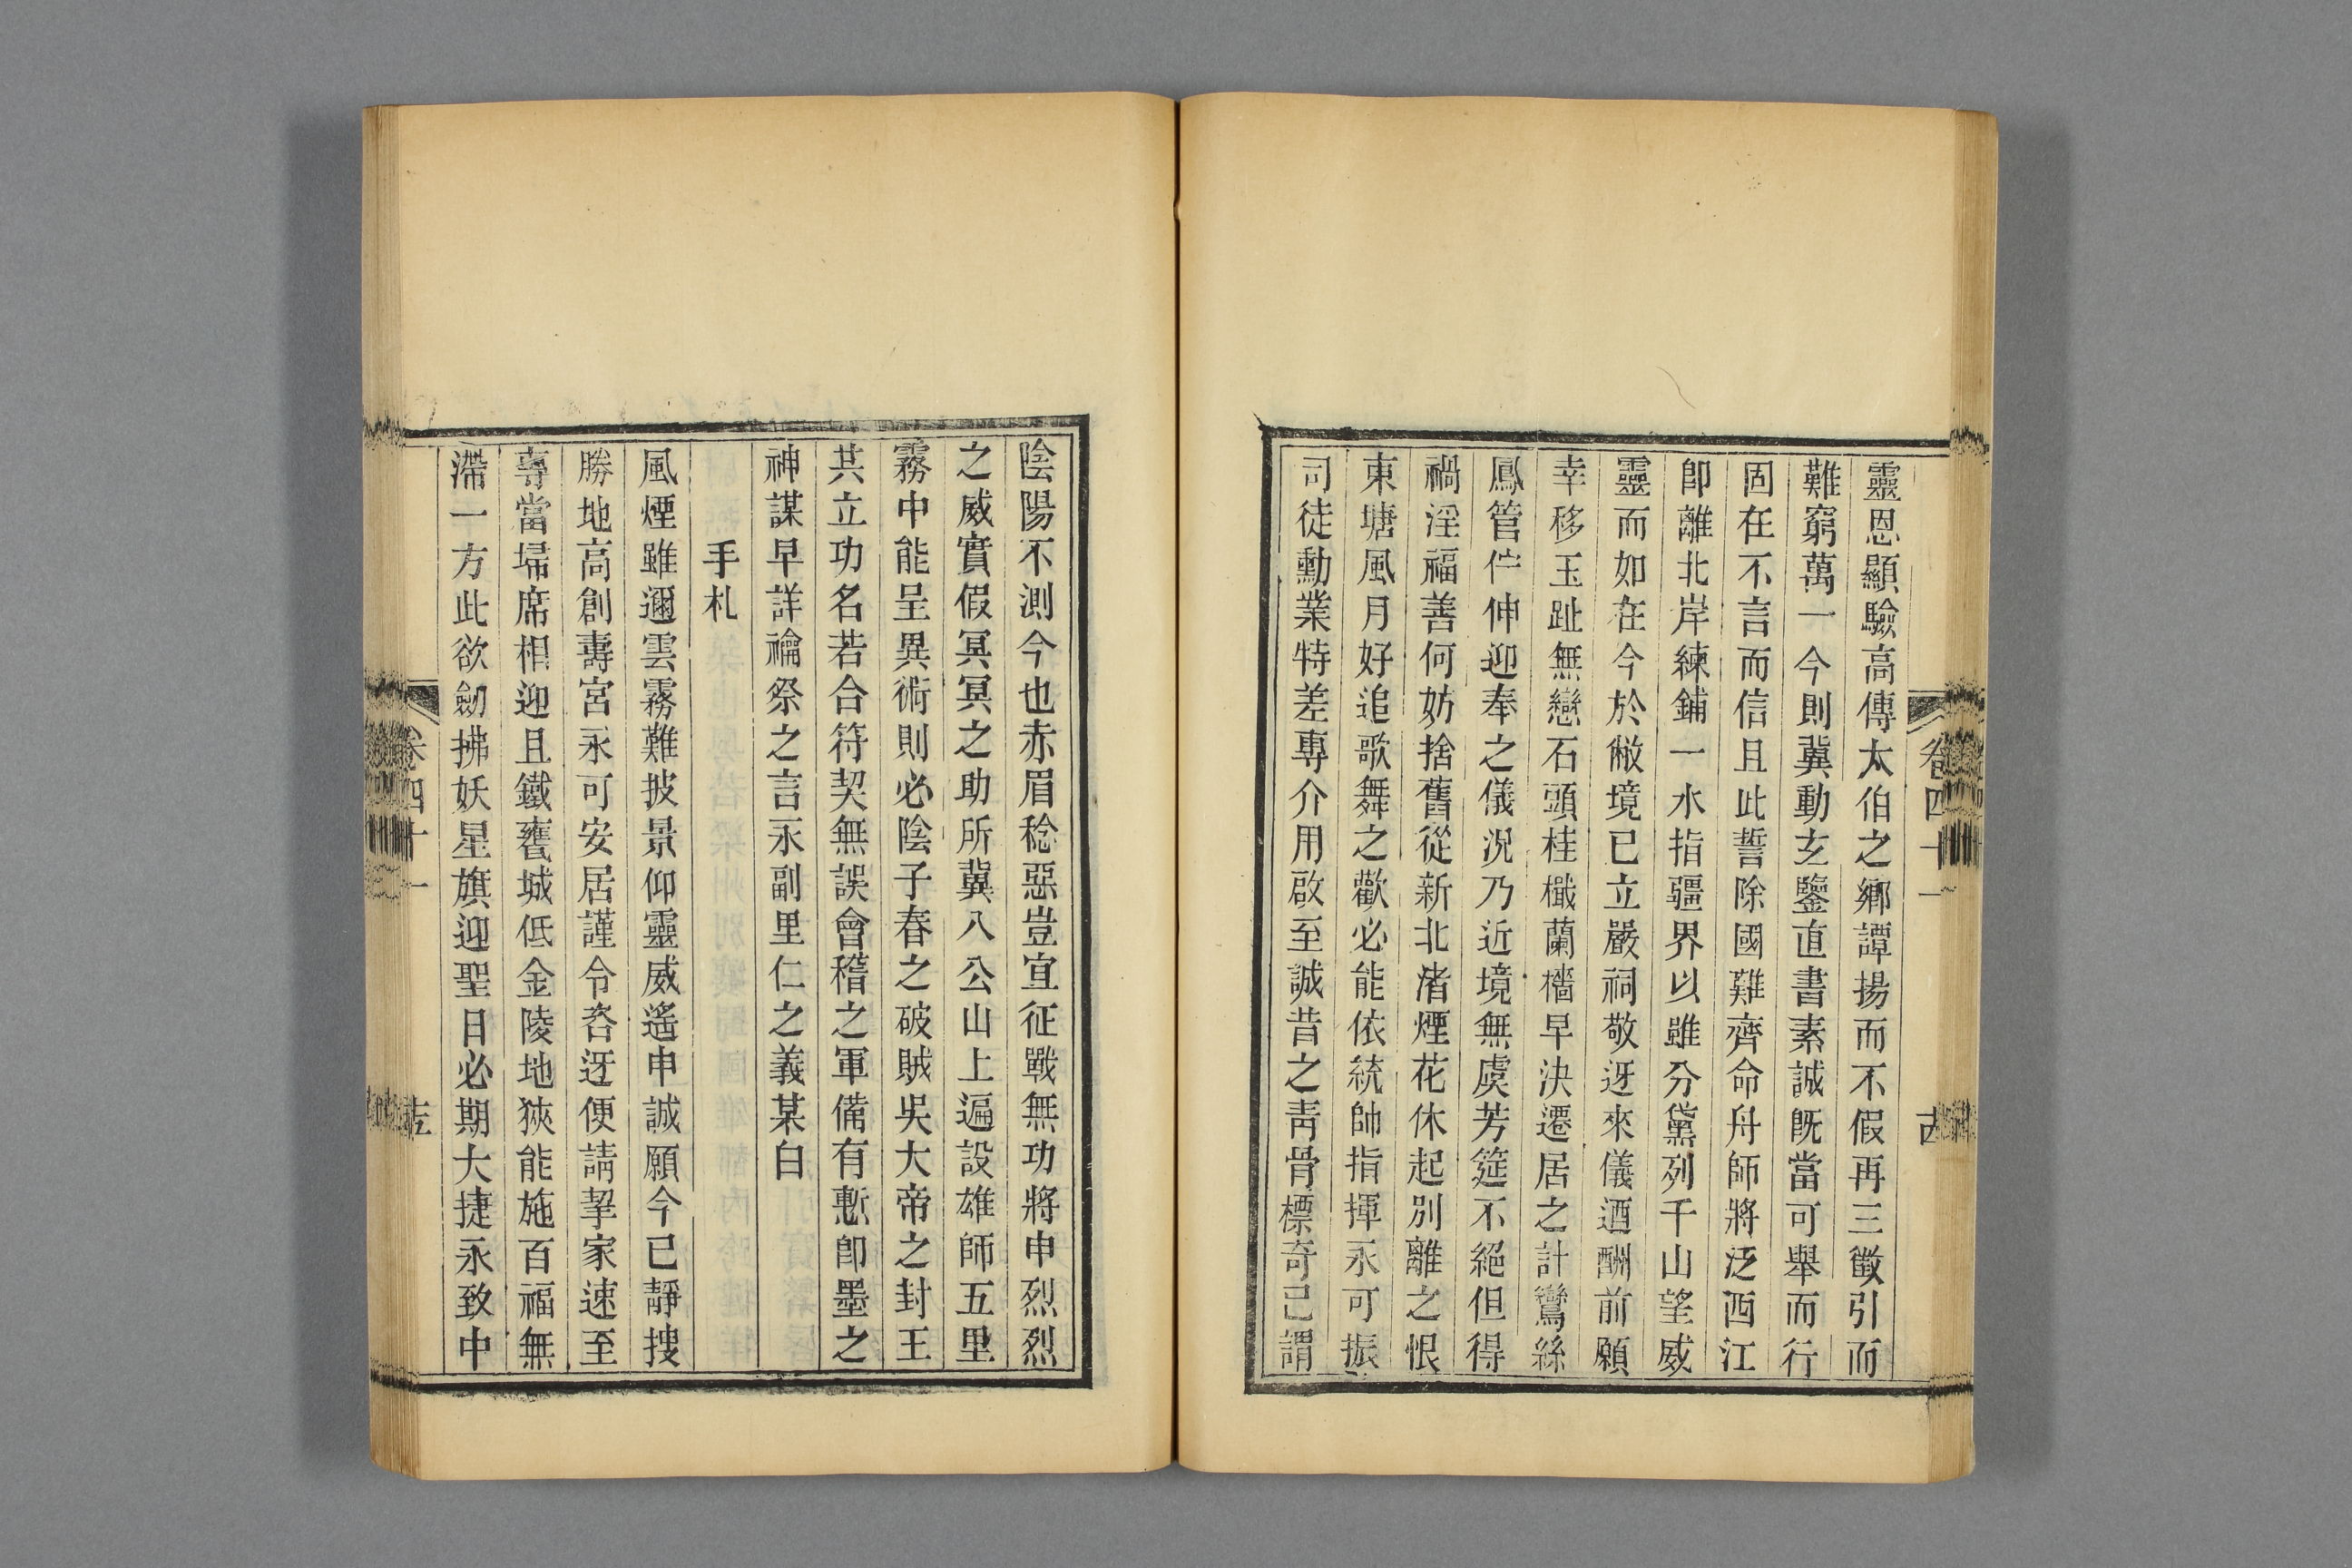 靈恩顯驗高傳太伯之鄉譚揚而不假再三徵引而
難窮萬一今則冀動玄鑒直書素誠旣當可舉而行
固在不言而信且此誓除國難齊命舟師將泛西江
卽離北岸練鋪一水指疆界以雖分黛列千山望威
靈而如在今於敝境已立嚴祠敬迓來儀迺酬前願
幸移玉趾無戀石頭桂檝蘭檣早決遷居之計鸞絲
鳳管伫伸迎奉之儀況乃近境無虞芳筵不絕但得
禍淫福善何妨捨舊從新北渚煙花休起別離之恨
東塘風月好追歌舞之歡必能依統帥指揮永可振
司徒勳業特差專介用啟至誠昔之靑骨標奇已謂
卷四十一
古
陰陽不測今也赤眉稔惡豈宜征戰無功將申烈烈
之威實假冥冥之助所冀八公山上遍設雄師五里
霧中能呈異術則必陰子春之破賊吳大帝之封王
共立功名若合符契無誤會稽之軍備有慙卽墨之
神謀早詳禴祭之言永副里仁之義某白
手札
風煙雖邇雲霧難披景仰靈威遙申誠願今已靜搜
勝地高創壽宮永可安居謹令咨迓便請挈家速至
專當埽席相迎且鐵甕城低金陵地狹能施百福無
滯一方此欲劒拂妖星旗迎聖日必期大捷永致中
卷四十一